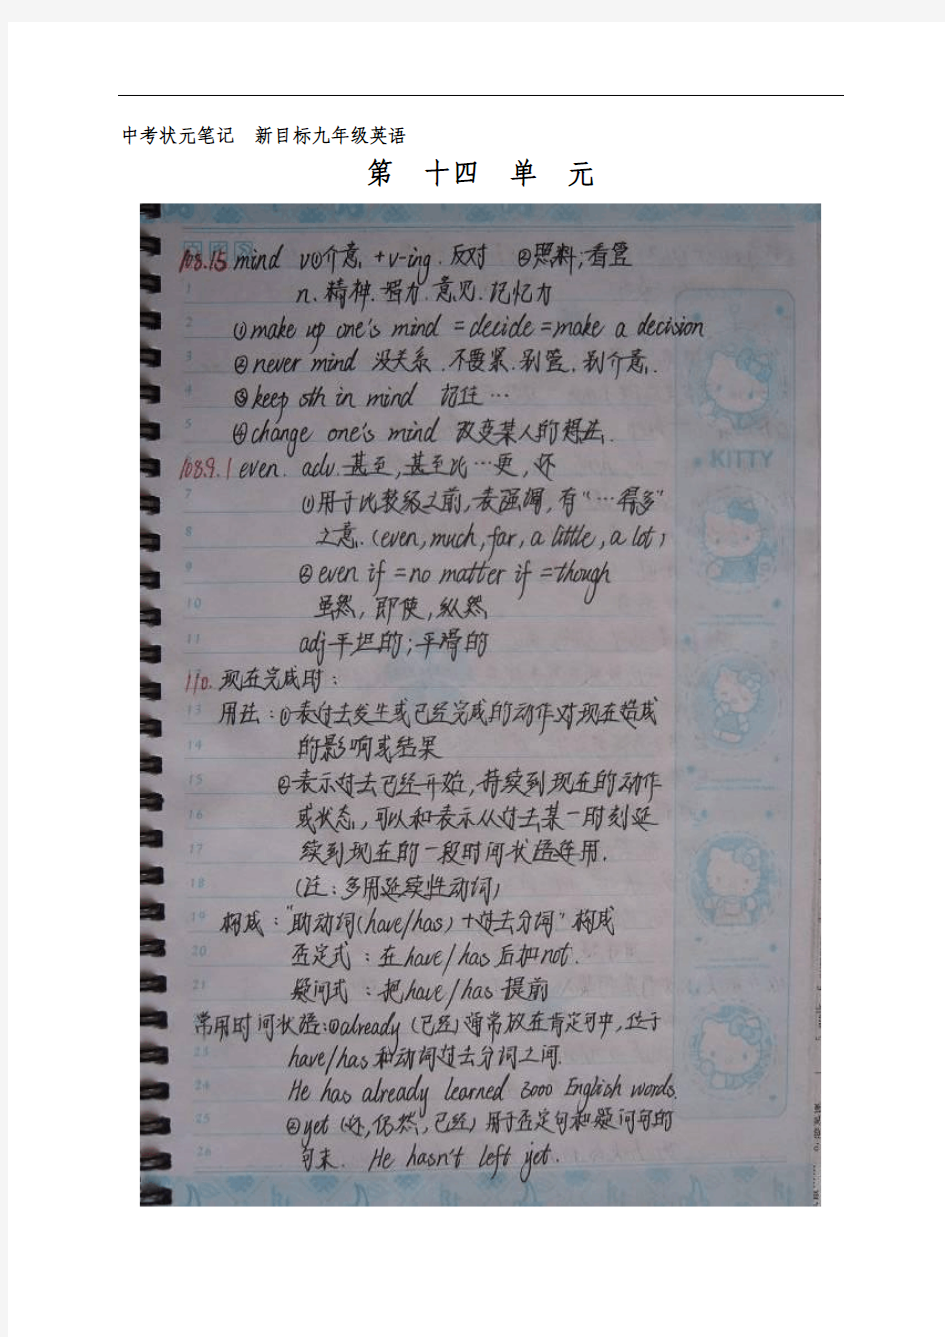 中考状元笔记 新目标九年级英语
第 十四 单 元
108.15 mind v①介意 +v-ing. 反对 ②照料;看管
n. 精神. 智力. 意见. 记忆力
①make up one's mind =decide=make a decision
②never mind 没关系. 不要紧. 别管. 别介意.
③keep sth in mind 记住…
④change one's mind 改变某人的想法.
108.9.1 even. adv. 甚至, 甚至比…更, 还
①用于比较级之前, 表强调, 有“…得多”
之意. (even, much, far, a little, a lot)
②even if =no matter if =though
虽然, 即使, 纵然
adj 平坦的; 平滑的
110. 现在完成时:
用法: ①表过去发生或已经完成的动作对现在造成
的影响或结果
②表示过去已经开始, 持续到现在的动作
或状态, 可以和表示从过去某一时刻延
续到现在的一段时间状语连用.
(注: 多用延续性动词)
构成: “助动词(have/has)+过去分词” 构成
否定式: 在have/has后加not.
疑问式: 把have/has提前
常用时间状语:①already (已经)通常放在肯定句中, 位于
have/has和动词过去分词之间.
He has already learned 3000 English words.
②yet (还, 仍然, 已经) 用于否定句和疑问句的
句末. He hasn't left yet.
KITTY